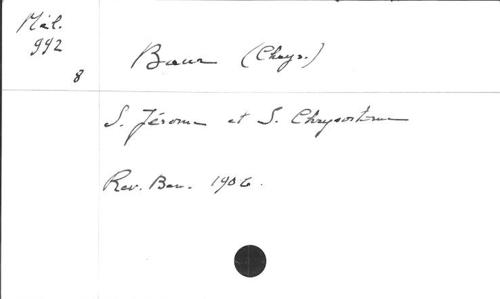 Mél.
992
8
Baur (Chrys.)
S. Jérome et S. Chrysostome
Rev. Ben. 1906.